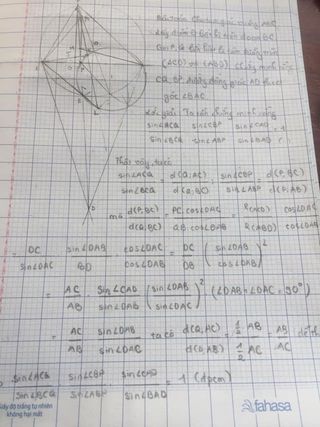 Bài toán: Cho tam giác vuông ABC
lấy điểm D bất kì trên đoạn BC
Gọi P, Q lần lượt là tâm
(ACD) và (ABD). Chứng minh rằng
CQ, BP, đường
góc ∠BAC
Lời giải: Ta cần chứng minh rằng
sin∠ACQ/sin∠BCQ · sin∠CBP/sin∠ABP · sin∠CAD/sin∠DAB = 1
Thật vậy, ta có
sin∠ACQ/sin∠BCQ = d(Q;AC)/d(Q;BC); sin∠CBP/sin∠ABP = d(P;BC)/d(P;AB)
mà d(P;BC)/d(Q;BC) = PC.cos∠DAC/QB.cos∠DAB = R(ACD)/R(ABD) · cos∠DAC/cos∠DAB
= DC/sin∠DAC · sin∠DAB/BD · cos∠DAC/cos∠DAB = DC/DB (sin∠DAB/cos∠DAB)²
= AC/AB · sin∠CAD/sin∠DAB (sin∠DAB/cos∠DAB)² (∠DAB+∠DAC=90°)
= AC/AB · sin∠DAB/sin∠DAC ta có d(Q,AC)/d(P,AB) = ½AB/½AC = AB/AC
sin∠ACQ/sin∠BCQ · sin∠CBP/sin∠ABP · sin∠CAD/sin∠BAD = 1 (đpcm)
Giấy độ trắng tự nhiên
không hại mắt
fahasa